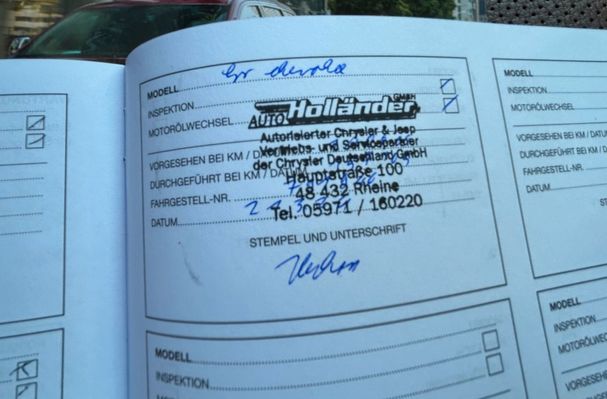 MODELL
Gr Cherokee
INSPEKTION
MOTORÖLWECHSEL
AUTO Holländer GMBH
Autorisierter Chrysler & Jeep
Vertriebs- und Servicepartner
der Chrysler Deutschland GmbH
Hauptstraße 100
48 432 Rheine
Tel. 05971 / 160220
VORGESEHEN BEI KM / DATUM
DURCHGEFÜHRT BEI KM / DATUM
FAHRGESTELL-NR.
DATUM
STEMPEL UND UNTERSCHRIFT
MODELL
INSPEKTION
MOTORÖLWECHSEL
MODELL
INSPEKTION
MOTORÖLWECHSEL
VORGESEHEN
DURCHGEFÜH
FAHRGESTELL-
DATUM
MODELL
INSPEKTION
MOTORÖLWE
VORGESEHE